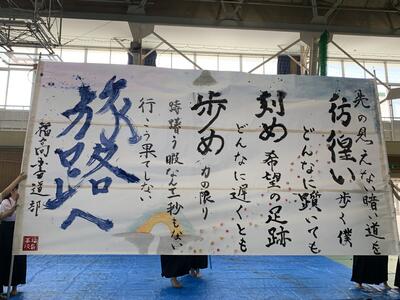 先の見えない暗い道を
彷徨い歩く僕
どんなに躓いても
刻め 希望の足跡
どんなに遅くとも
歩め 力の限り
躊躇う暇なんて秒もない
行こう果てしない
旅路へ
福高書道部